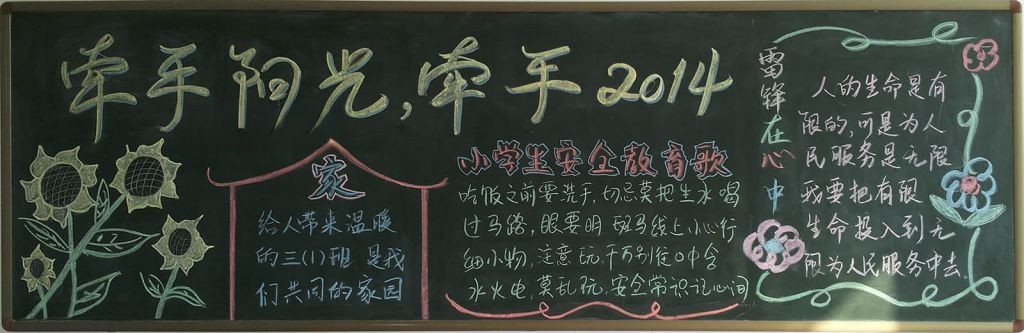 牵手阳光,牵手2014
家
给人带来温暖
的三(1)班是我
们共同的家园
小学生安全教育歌
吃饭之前要洗手,切忌莫把生水喝
过马路,眼要明 斑马线上小心行
细小物,注意玩,千万别往口中含
水火电,莫乱玩.安全常识记心间
雷锋在心中
人的生命是有
限的,可是为人
民服务是无限
我要把有限
生命投入到无
限为人民服务中去.